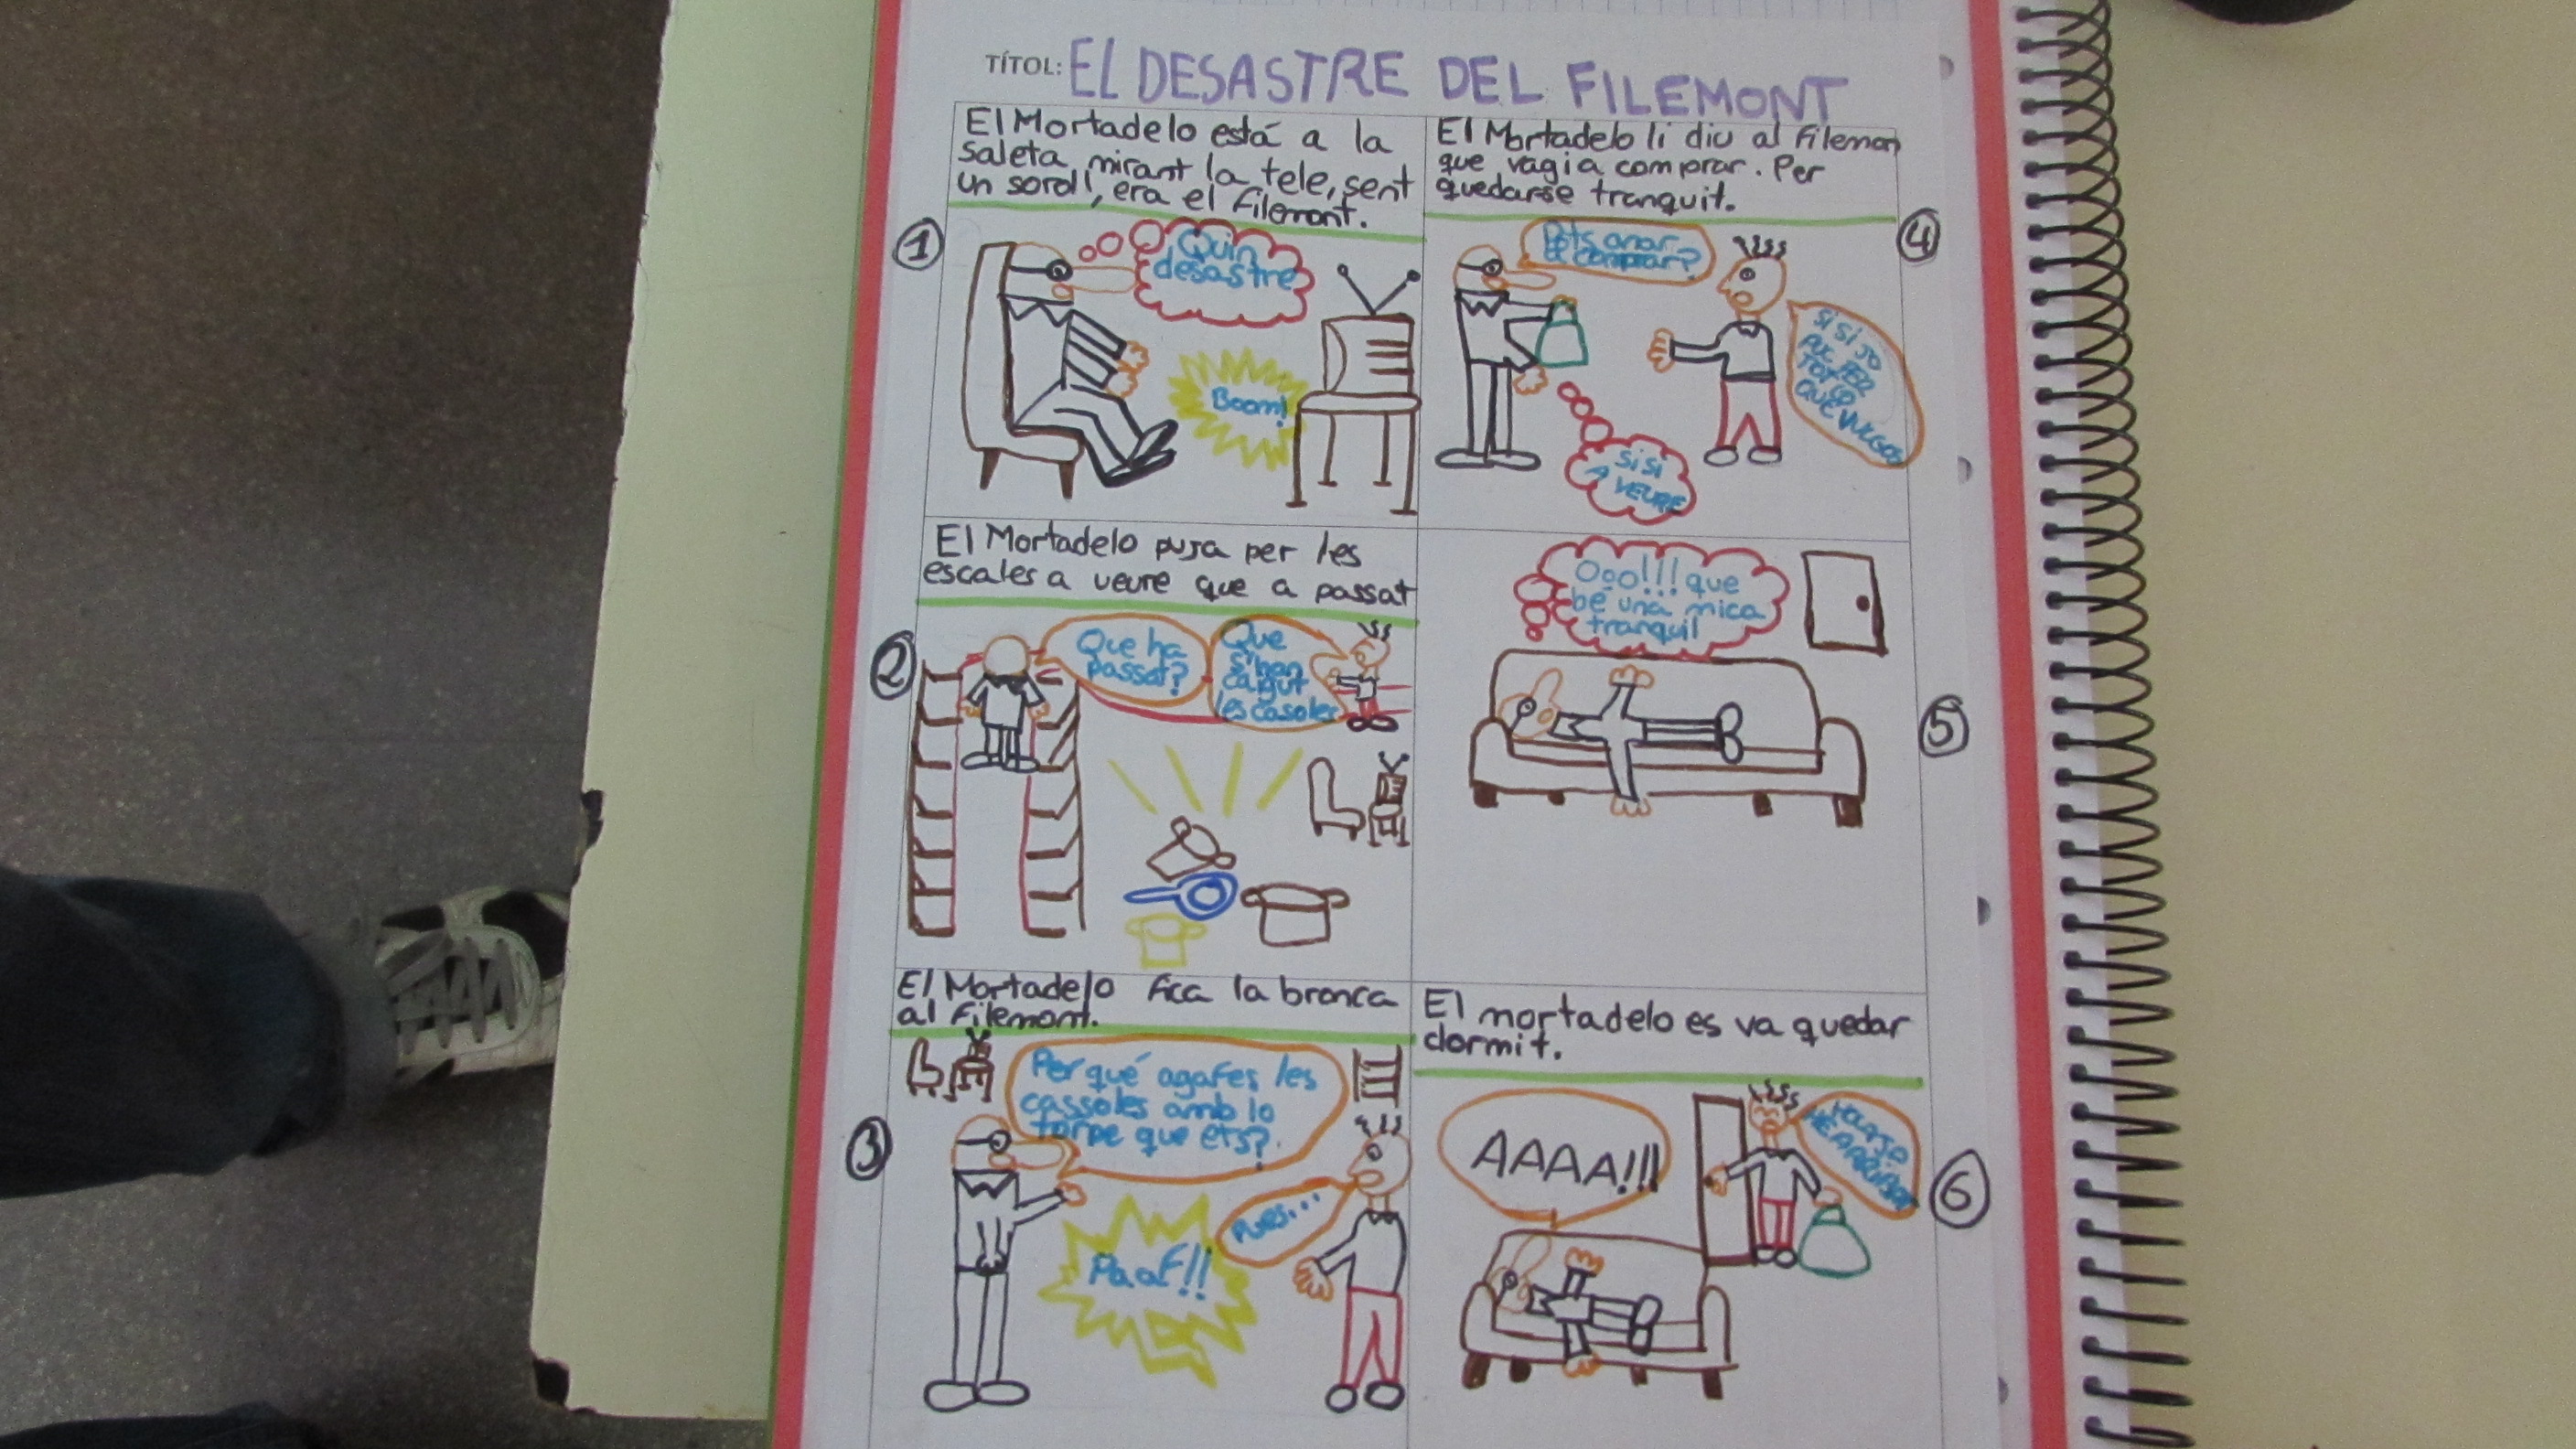 TÍTOL: EL DESASTRE DEL FILEMONT
El Mortadelo está a la
saleta mirant la tele, sent
un soroll, era el Filemont.
1
Quin
desastre
Boom!
El Mortadelo puja per les
escales a veure que a passat
2
Que ha
passat?
Que
s'hen
caigut
les casoles
El Mortadelo fica la bronca
al Filemont.
3
Per qué agafes les
cassoles amb lo
torpe que ets?
Pues...
Paaf!!
El Mortadelo li diu al Filemon
que vagi a comprar. Per
quedarse tranquit.
4
Pots anar
a comprar?
SI SI JO
PUC FER
TOT LO
QUE VULGOS
SI SI
A VEURE
5
Ooo!!! que
bé una mica
tranquil
El mortadelo es va quedar
dormit.
6
AAAA!!!
HOLA JA
HE ARRIBAT